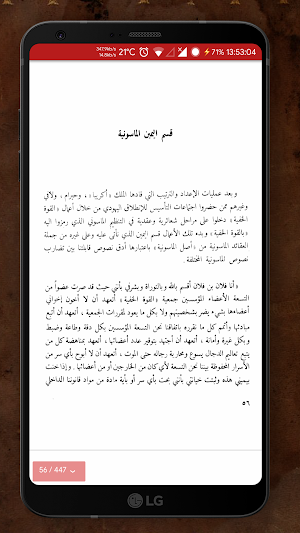 347.9kb/s
14.8kb/s
21°C
71% 13:53:04
قسم إيمين الماسونية
وبعد عمليات الإعداد والترتيب التي قادها الملك «أكريبا»، وحيرام، ولافي
وغيرهم ممن حضروا اجتماعات التأسيس للإنطلاق اليهودي من خلال أعمال «القوة
الخفية» دخلوا على مراحل شعائرية وعقدية في التنظيم الماسوني الذي رمزوا إليه
«بالقوة الخفية» وبدء تلك الأعمال قسم إيمين الذي نأتي عليه وعلى غيره من جملة
العقائد الماسونية من «أصل الماسونية» باعتبارها أدق نصوص قابلتنا بين تضارب
نصوص الماسونية المختلفة.
«أنا فلان بن فلان أقسم بالله والتوراة وبشرفي بأنني حيث قد صرت عضواً من
التسعة الأعضاء المؤسسين لجمعية «القوة الخفية» أتعهد أن لا أخون إخواني
أعضاءها بشيء يضر بشخصيتهم ولا بكل ما يعود لمقررات الجمعية، أتعهد أن أتبع
مبادئها وأتمم كل ما نقرره باتفاقنا نحن التسعة المؤسسين بكل دقة وطاعة وضبط
وبكل غيرة وأمانة، أتعهد أن أجتهد بتوفير عدد أعضائها، أتعهد بمناهضة كل من
يتبع تعاليم الدجال يسوع ومحاربة رجاله حتى الموت، أتعهد أن لا أبوح بأي سر من
الأسرار المحفوظة بيننا نحن التسعة لأي كان من الخارجين أو من أعضائها. وإذا حنثت
بيميني هذه وثبتت خيانتي بأنني بحت بأي سر أو بأية مادة من مواد قانوننا الداخلي
٥٦
56 / 447
LG